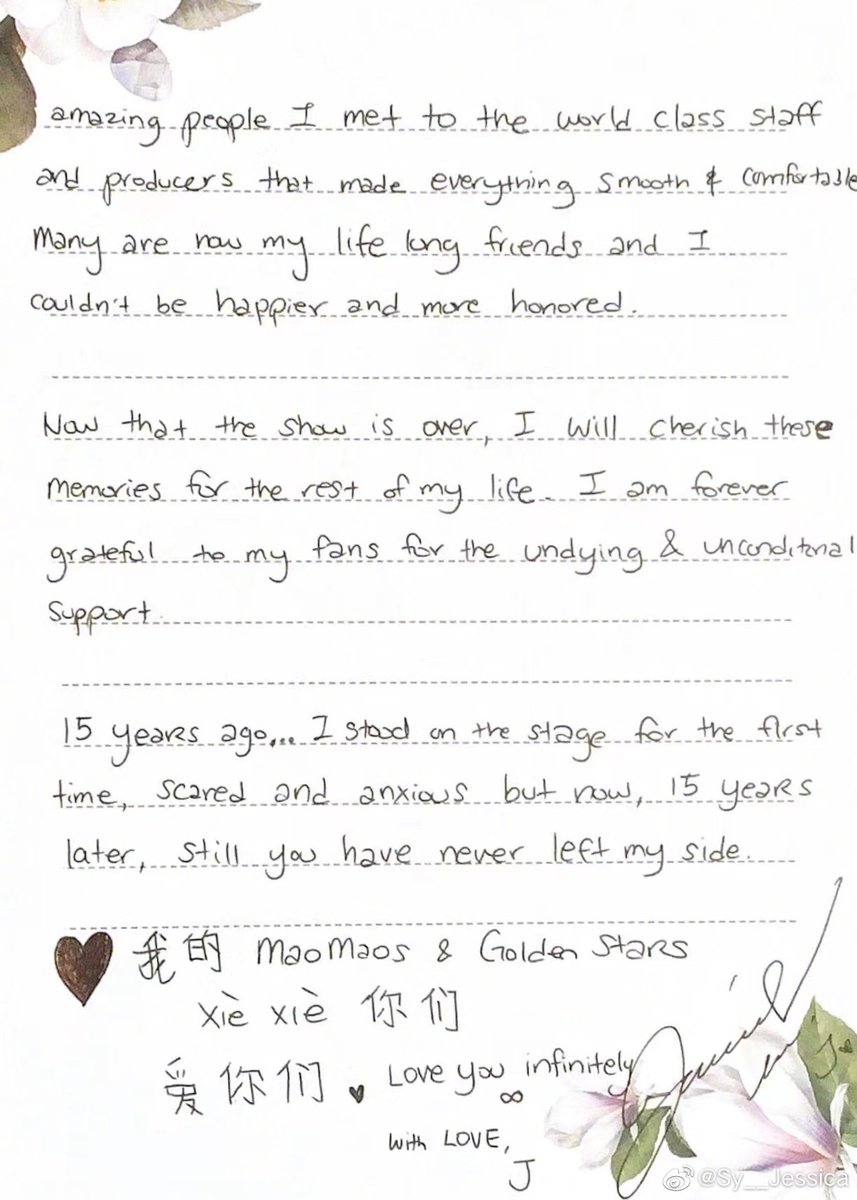 amazing people I met to the world class staff
and producers that made everything smooth & comfortable
Many are now my life long friends and I
couldn't be happier and more honored.
Now that the show is over, I will cherish these
memories for the rest of my life. I am forever
grateful to my fans for the undying & unconditional
support.
15 years ago... I stood on the stage for the first
time, scared and anxious but now, 15 years
later, still you have never left my side.
我的 MaoMaos & Golden Stars
xiè xiè 你们
爱你们 Love you infinitely
∞
with LOVE,
J
@Sy__Jessica